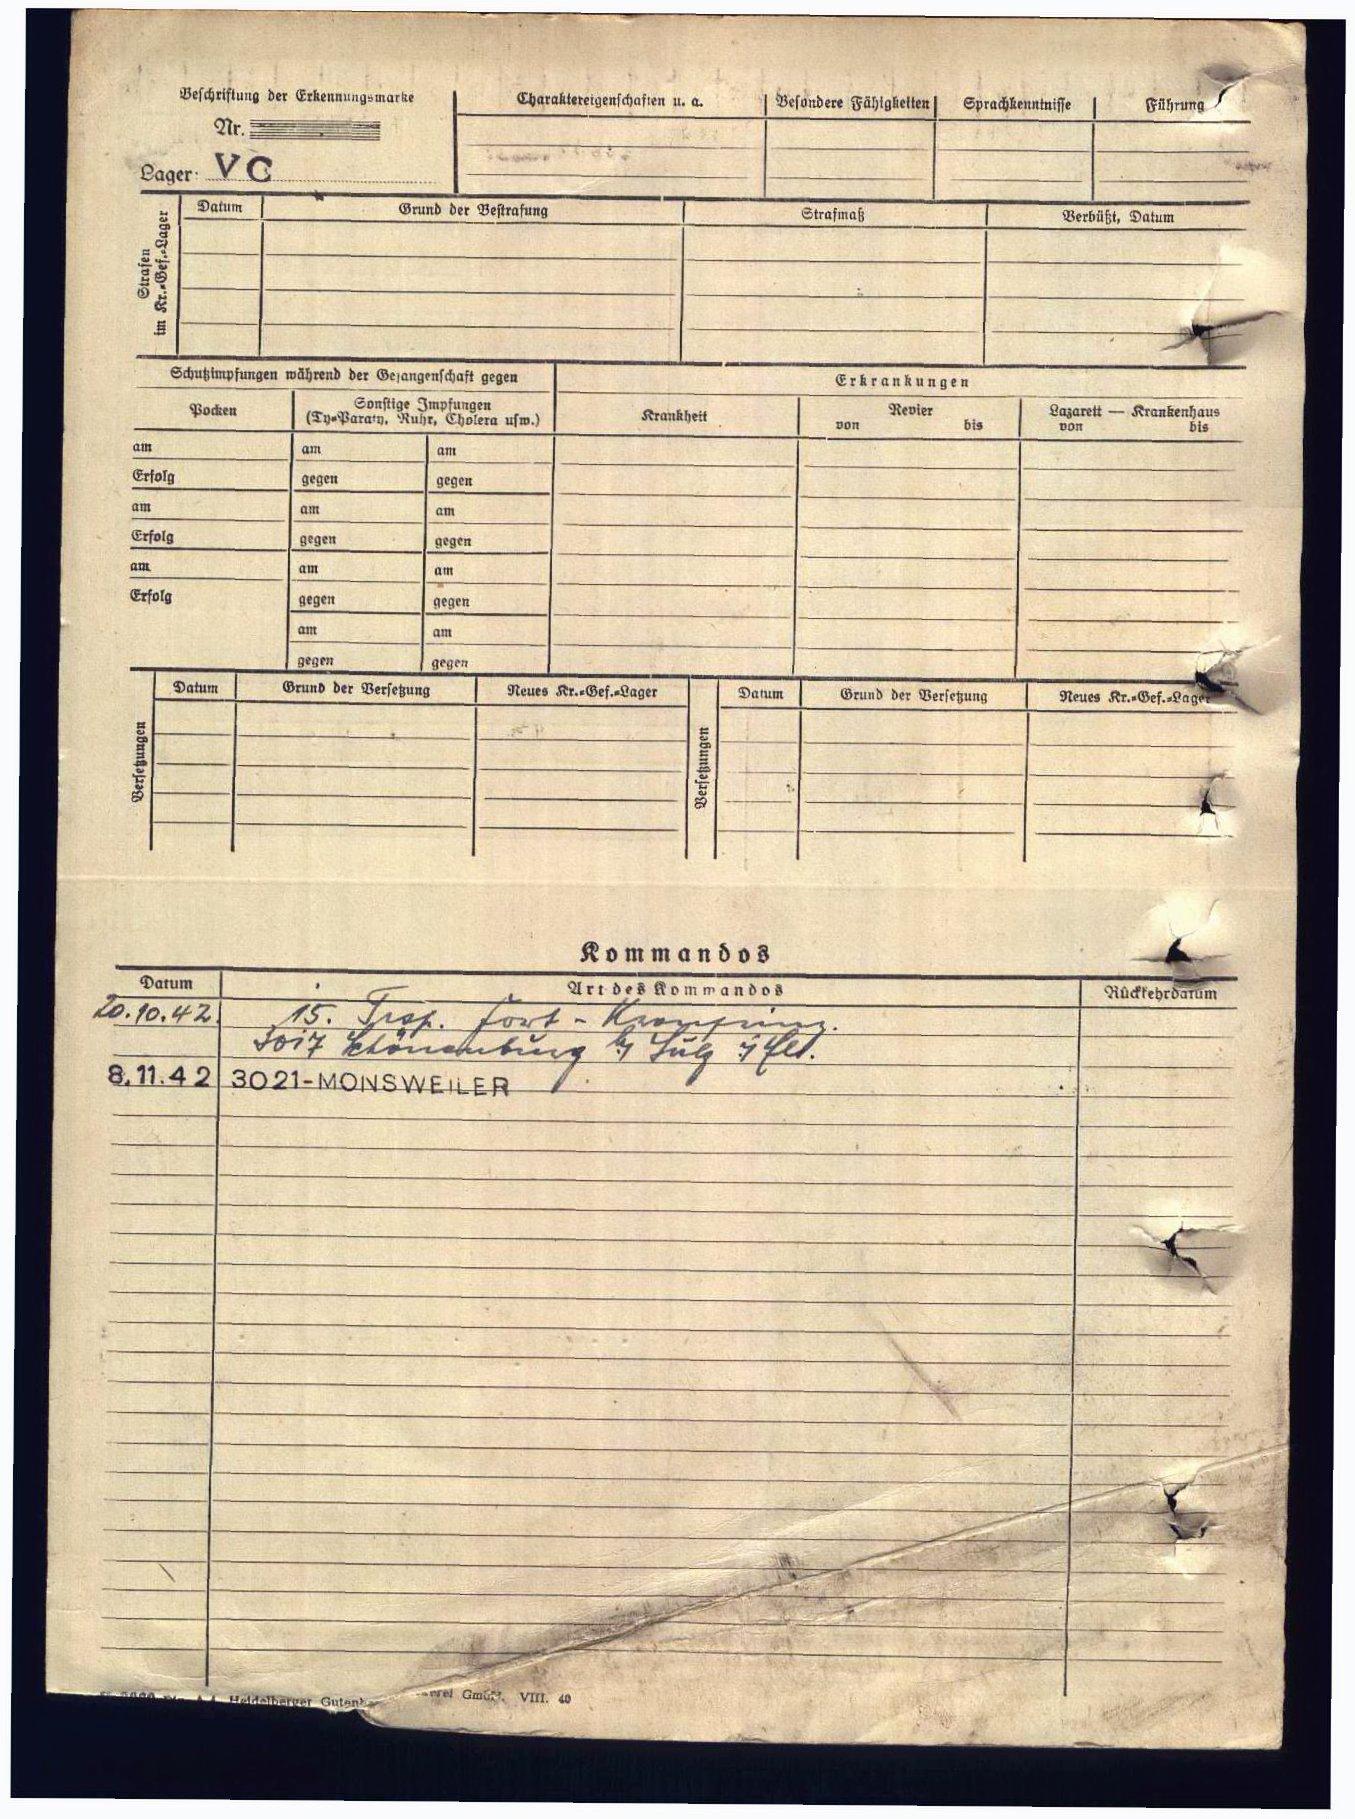 Beschriftung der Erkennungsmarke
Nr.
Lager: VC
Charaktereigenschaften u. a.
Besondere Fähigkeiten
Sprachkenntnisse
Führung
Strafen
im Kr.=Gef.=Lager
Datum
Grund der Bestrafung
Strafmaß
Verbüßt, Datum
Schutzimpfungen während der Gefangenschaft gegen
Erkrankungen
Pocken
Sonstige Impfungen
(Ty=Paraty, Ruhr, Cholera usw.)
Krankheit
Revier
von bis
Lazarett — Krankenhaus
von bis
am am am
Erfolg gegen gegen
am am am
Erfolg gegen gegen
am am am
Erfolg gegen gegen
am am
gegen gegen
Versetzungen
Datum
Grund der Versetzung
Neues Kr.=Gef.=Lager
Versetzungen
Datum
Grund der Versetzung
Neues Kr.=Gef.=Lager
Kommandos
Datum
Art des Kommandos
Rückkehrdatum
20.10.42. 15. Fort -
Schönenburg b/ Sulz
8.11.42 3021-MONSWEILER
Heidelberger GmbH. VIII. 40